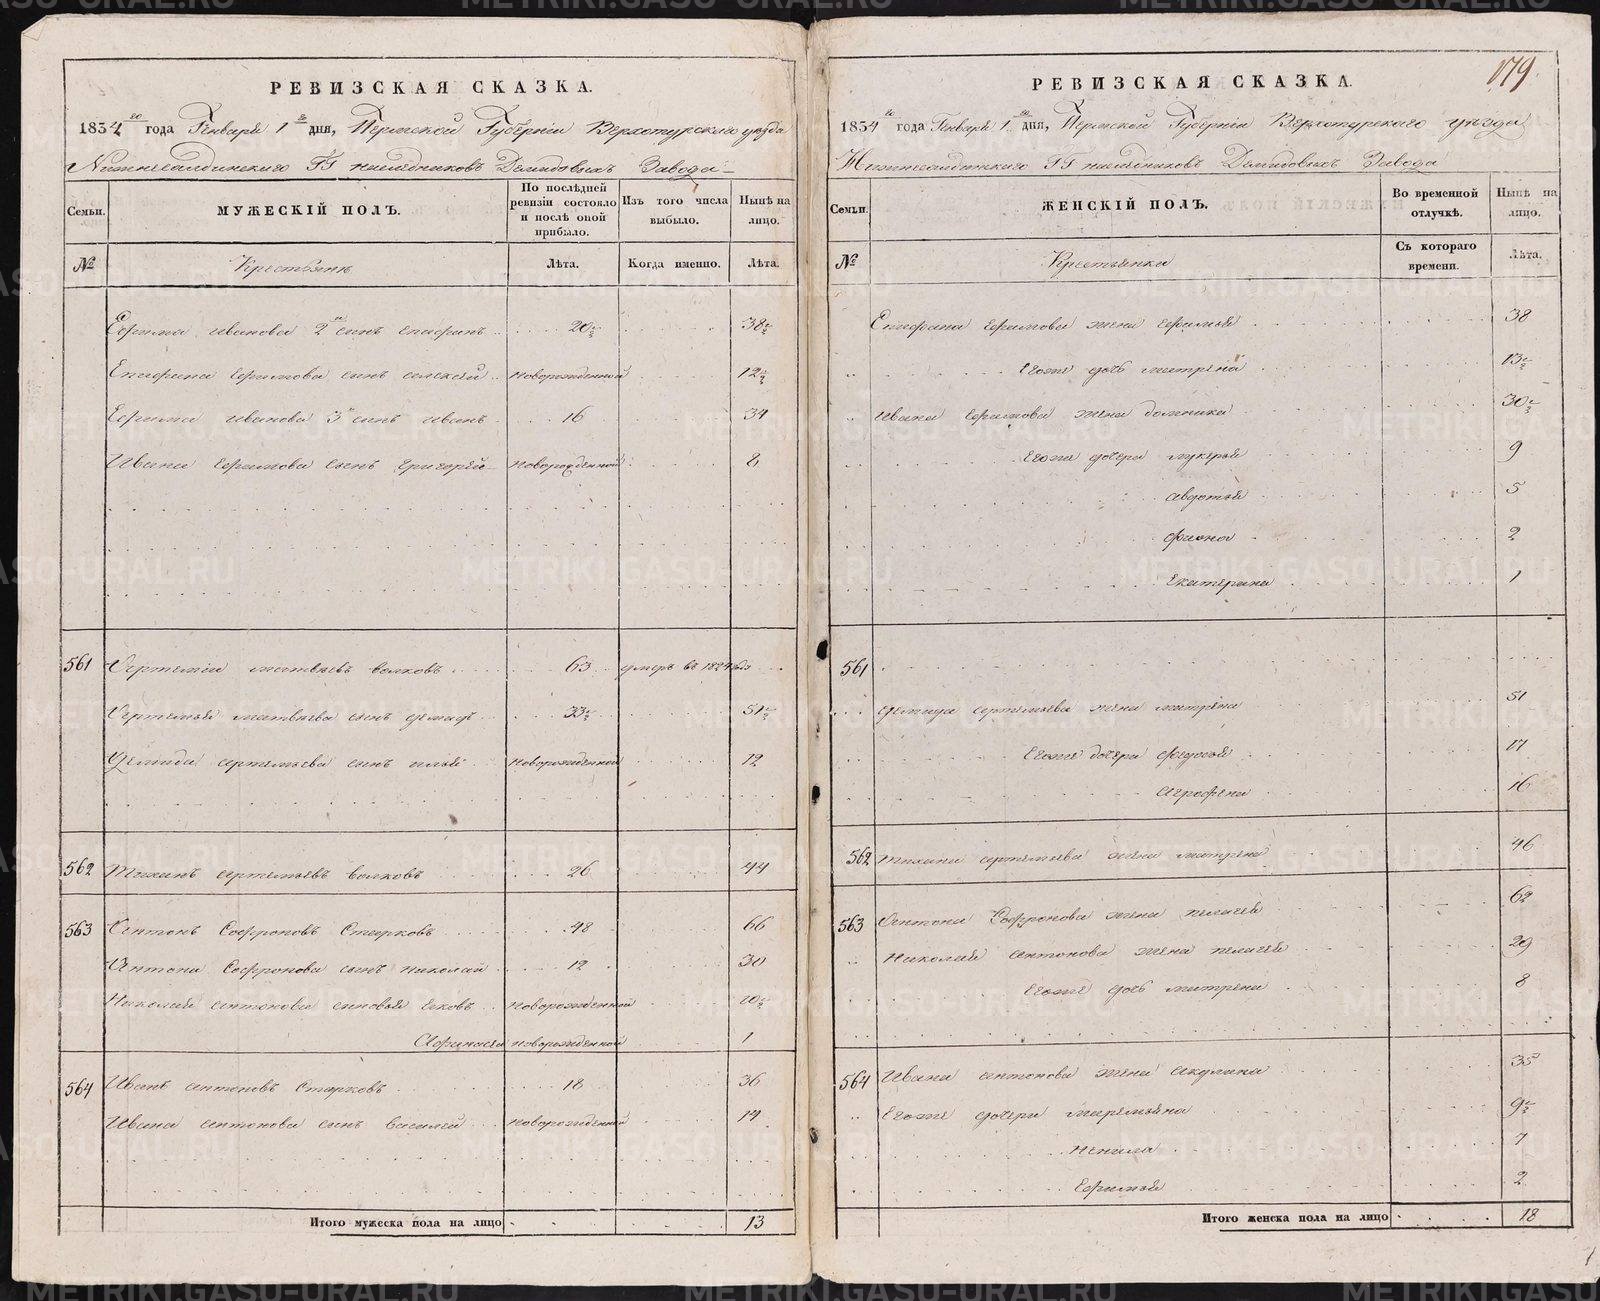 РЕВИЗСКАЯ СКАЗКА.
1834го года Генваря 1го дня, Пермской Губерніи Верхотурского уѣзда
Нижнесалдинскаго ГГ наслѣдниковъ Демидовыхъ Завода
Семьи.
МУЖЕСКІЙ ПОЛЪ.
По послѣдней ревизіи состояло и послѣ оной прибыло.
Изъ того числа выбыло.
Нынѣ на лицо.
№
Крестьянъ
Лѣта.
Когда именно.
Лѣта.
Ефрима иванова 2й сынъ епифанъ 20½ 38½
Епифана ефимова сынъ алексѣй новорожденной 12½
Ефима иванова 3й сынъ иванъ 16 34
Ивана ефимова сынъ григорей новорожденной 8
561 Артемій матвѣевъ волковъ 63 умеръ въ 1824
Артемья матвѣева сынъ демидъ 33½ 51½
Демида артемьева сынъ илья новорожденной 12
562 Тихинъ артемьевъ волковъ 26 44
563 Антонъ Софроновъ Старковъ 48 66
Антона Софронова сынъ николай 12 30
Николая антонова сыновья яковъ новорожденной 10½
Афанасей новорожденной 1
564 Иванъ антоновъ Старковъ 18 36
Ивана антонова сынъ василей новорожденной 14
Итого мужеска пола на лицо 13
179
РЕВИЗСКАЯ СКАЗКА.
1834го года Генваря 1го дня, Пермской Губерніи Верхотурскаго уѣзда
Нижнесалдинскаго ГГ наслѣдниковъ Демидовыхъ Завода
Семьи.
ЖЕНСКІЙ ПОЛЪ.
Во временной отлучкѣ.
Нынѣ на лицо.
№
Крестьянка
Съ котораго времени.
Лѣта.
Епифана ефимова жена ефимья 38
Егоже дочь матрена 13½
Ивана ефимова жена домника 30½
Егоже дочери лукерья 9
авдотья 5
фиона 2
Екатерина 1
561
Демида артемьева жена матрена 51
Егоже дочери федосья 17
Аграфена 16
562 Тихина артемьева жена матрена 46
563 Антона Софронова жена пелагея 62
Николая антонова жена пелагея 29
Егоже дочь матрена 8
564 Ивана антонова жена акулина 35
Егоже дочери маремьяна 9½
Ненила 7
Ефимья 2
Итого женска пола на лицо 18
METRIKI.GASO-URAL.RU